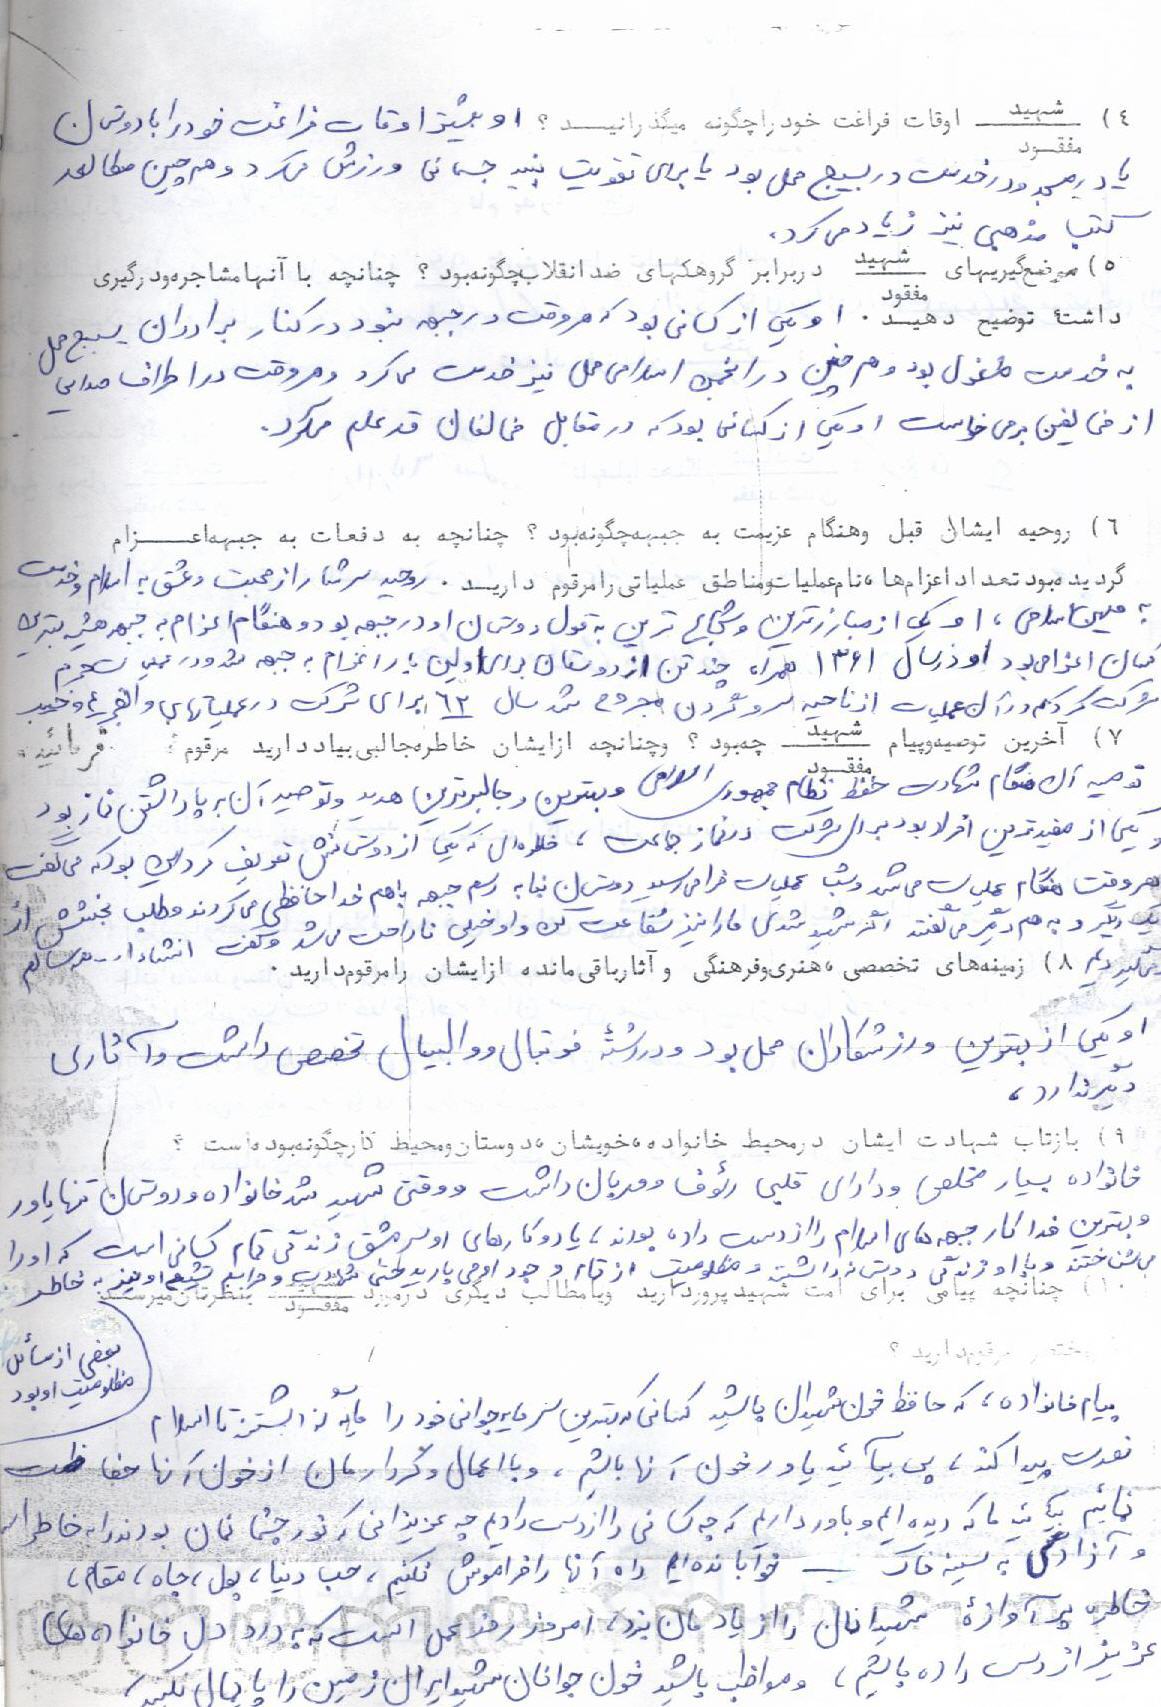 ۴) شهید / مفقود اوقات فراغت خود را چگونه میگذرانید ؟ او بیشتر اوقات فراغت خود را با دوستان
یا در مسجد و در خدمت در بسیج محل بود یا برای تقویت بنیه جسمانی ورزش می کرد و هم چنین مطالعه
کتب مذهبی نیز زیاد می کرد.
۵) موضع گیریهای شهید / مفقود در برابر گروهکهای ضد انقلاب چگونه بود ؟ چنانچه با آنها مشاجره و درگیری
داشته توضیح دهید . او یکی از کسانی بود که هر وقت در جبهه نبود در کنار برادران بسیج محل
به خدمت مشغول بود و هم چنین در انجمن اسلامی محل نیز خدمت می کرد و هر وقت در اطراف صدایی
از مخالفین برمی خواست او یکی از کسانی بود که در مقابل مخالفان قد علم می کرد.
۶) روحیه ایشان قبل و هنگام عزیمت به جبهه چگونه بود ؟ چنانچه به دفعات به جبهه اعزام
گردیده بود تعداد اعزام ها ، نام عملیات و مناطق عملیاتی را مرقوم دارید . روحیه سرشار از محبت و عشق به اسلام و خدمت
به میهن اسلامی ، او یکی از مبارزترین و شجاع ترین به قول دوستان او در جبهه بود و هنگام اعزام به جبهه
اعزامی بود او در سال ۱۳۶۱ همراه چند تن از دوستان برای اولین بار اعزام به جبهه شد و در
شرکت کرد که در آن عملیات از ناحیه سر و گردن مجروح شد سال ۶۲ برای شرکت در عملیاتهای والفجر ۴ و خیبر
۷) آخرین توصیه و پیام شهید / مفقود چه بود ؟ و چنانچه از ایشان خاطره جالبی بیاد دارید مرقوم فرمائید .
توصیه آن هنگام شهادت حفظ نظام جمهوری اسلامی و بهترین و جالبترین هدیه و توصیه آن بر پا داشتن نماز بود
و یکی از مفیدترین افراد بود برای شرکت در نماز جماعت ، خاطره ای که یکی از دوستانش تعریف کرد این بود که می گفت
هر وقت هنگام عملیات می شد و شب عملیات فرا می رسید دوستان بنا به رسم جبهه با هم خداحافظی می کردند و طلب بخشش از
یک دیگر و به هم دیگر می گفتند اگر شهید شدی ما را نیز شفاعت کن و او خیلی ناراحت می شد و گفت انشاءا... همه سالم
۸) زمینه های تخصصی ، هنری و فرهنگی و آثار باقی مانده از ایشان را مرقوم دارید .
او یکی از بهترین ورزشکاران محل بود و در رشته فوتبال و والیبال تخصص داشت و آثاری
دیگر ندارد ،
۹) بازتاب شهادت ایشان در محیط خانواده ، خویشان ، دوستان و محیط کار چگونه بوده است ؟
خانواده بسیار مخلص و دارای قلبی رئوف و مهربان داشت و وقتی شهید شد خانواده و دوستان تنها یاور
و بهترین فداکار جبهه های اسلام را از دست داده بودند ، یاد و کارهای او سرمشق زندگی تمام کسانی است که او را
می شناختند و با او زندگی و دوستی داشتند و مظلومیت از تمام وجود او می بارید حتی شهادت و مراسم تشییع او نیز به خاطر
بعضی از مسائل
مظلومیت او بود
۱۰) چنانچه پیامی برای امت شهید پرور دارید و یا مطالب دیگری در مورد شهید / مفقود بنظرتان میرسد
مرقوم دارید ؟
پیام خانواده ، که حافظ خون شهیدان باشید کسانی که بهترین سرمایه جوانی خود را مایه گذاشتند تا اسلام
نصرت پیدا کند ، پس بیائید یاور خون آنها باشیم ، و با اعمال و کردارمان از خون آنها حفاظت
نمائیم بیائید ما که دیده ایم و باور داریم که چه کسانی را از دست دادیم چه عزیزانی که نور چشمانمان بودند را به خاطر اسلام
و آزادگی به سینه خاک خوابانده ایم راه آنها را فراموش نکنیم ، حب دنیا ، پول ، جاه ، مقام ،
خاطره پر آوازه شهیدانمان را از یادمان نبرد ، امروز روز عمل است که به درد دل خانواده های
عزیز از دست داده باشیم ، و مواظب باشید خون جوانان شهید ایران زمین را پایمال نکنید ،